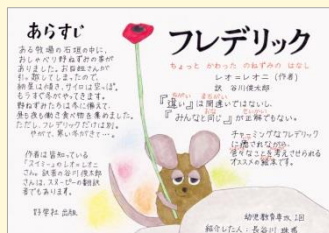 あらすじ
ある牧場の石垣の中に、
おしゃべり野ねずみの事が
ありました。お百姓さんが
引っ越してしまったので、
納屋は傾き、サイロは空っぽ。
もうすぐ冬がやってきます。
野ねずみたちは冬に備えて、
昼も夜も働き食べ物を集めました。
ただし、フレデリックだけは別。
やがて、寒い冬がきて…。
作者は皆知っている
『スイミー』のレオ=レオニ
さん。訳者の谷川俊太郎
さんは、スヌーピーの翻訳
者でもあります。
好学社 出版
フレデリック
ちょっと かわった のねずみの はなし
レオ=レオニ (作者)
訳 谷川俊太郎
『違い』は間違いではないし、
『みんなと同じ』が正解でもない。
チャーミングなフレデリック
に癒されながら、
色々なことを考えさせられる
オススメの絵本です。
幼児教育専攻 2回
紹介した人: 長谷川